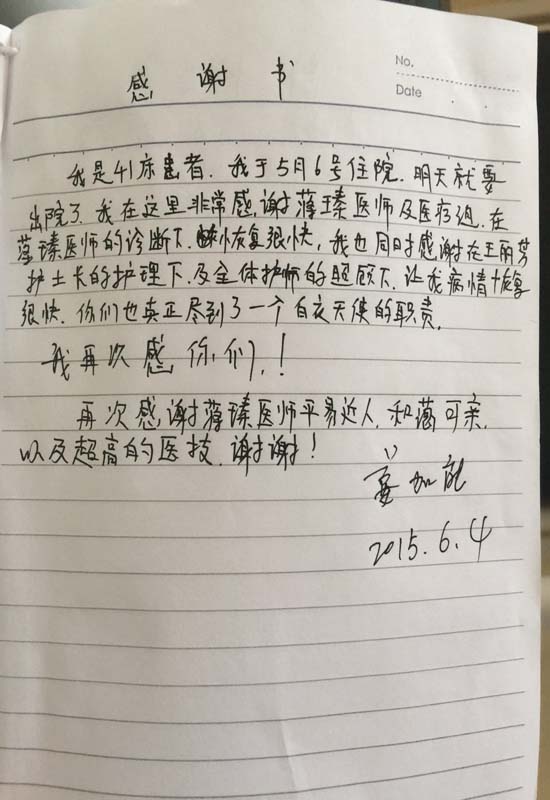 No.
Date . .
感谢书
我是41床患者. 我于5月6号住院. 明天就要
出院了. 我在这里非常感谢薄瑧医师及医疗组. 在
薄瑧医师的诊断下. 恢复很快, 我也同时感谢在王丽芳
护士长的护理下. 及全体护师的照顾下. 让我病情恢复
很快. 你们也真正尽到了一个白衣天使的职责.
我再次感你们.!
再次感谢薄瑧医师平易近人. 和蔼可亲.
以及超高的医技. 谢谢!
加能
2015.6.4